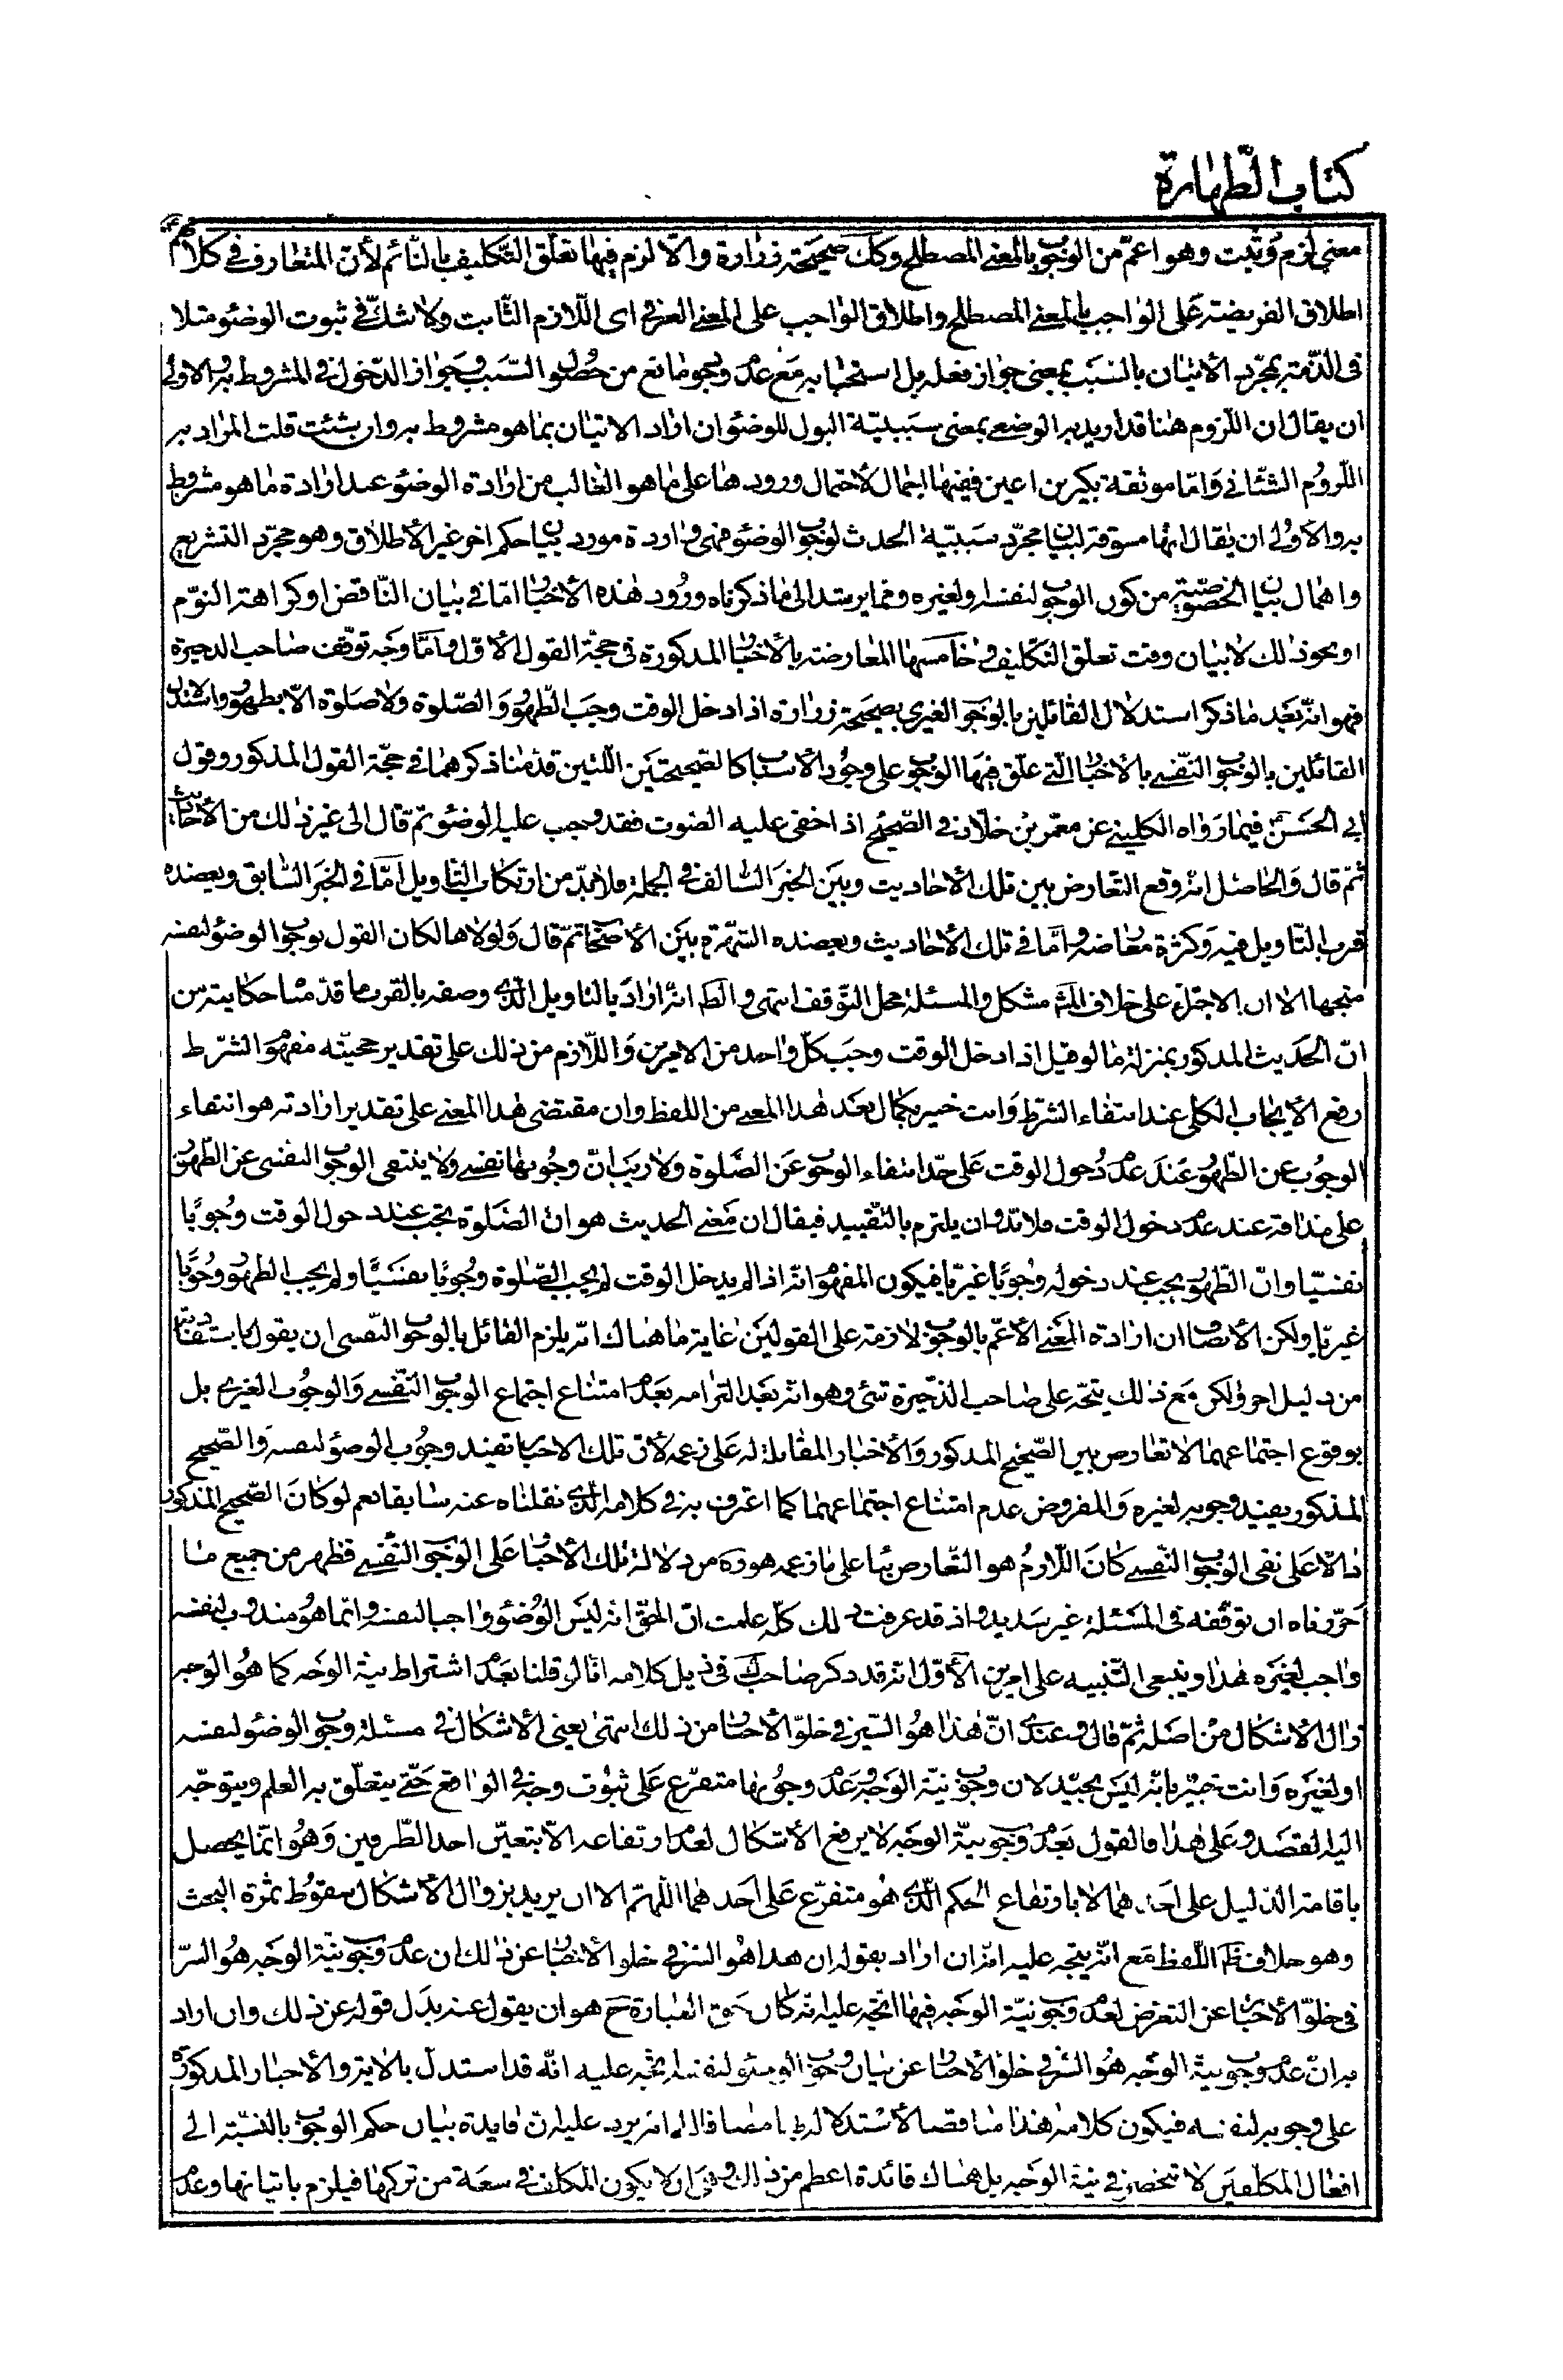 كتاب الطّهارة
معنى لزم وثبت وهو اعمّ من الوجوب بالمعنى المصطلح وكك صحيحة زرارة والّا لزم فيها تعلّق التّكليف بالنّائم لأنّ المتعارف في كلامهم
اطلاق الفريضة على الواجب بالمعنى المصطلح واطلاق الواجب على المعنى العرفي اى اللّازم الثّابت ولا شكّ في ثبوت الوضوء مثلا
في الذّمّة بمجرّد الأتيان بالسّبب بمعنى جواز فعله بل استحبابه مع عدم وجود مانع من حصول السّبب وجواز الدّخول في المشروط به والاولى
ان يقال ان اللّزوم هنا قد اريد به الوضع بمعنى سببيّة البول للوضوء ان اراد الاتيان بما هو مشروط به وان شئت قلت المراد به
اللّزوم الشّأني وامّا موثقة بكير بن اعين ففيها اجمال لأحتمال ورودها على ما هو الغالب من ارادة الوضوء عند ارادة ما هو مشروط
به والأولى ان يقال انّها مسوقة لبيان مجرّد سببيّة الحدث لوجوب الوضوء فهى واردة مورد بيان حكم اخر غير الأطلاق وهو مجرّد التشريع
واهمال بيان الخصوصيّة من كون الوجوب لنفسه او لغيره وممّا يرشد الى ما ذكرناه ورود هذه الأخبار امّا في بيان النّاقض او كراهة النوّم
او نحو ذلك لا بيان وقت تعلّق التّكليف وخامسها المعارضة بالأخبار المذكورة في حجّة القول الأوّل وامّا وجه توقّف صاحب الذخيرة
فهو انّه بعد ما ذكر استدلال القائلين بالوجوب الغيرى بصحيحة زرارة اذا دخل الوقت وجب الطّهور والصّلوة ولا صلوة الّا بطهور واستدلال
القائلين بالوجوب النّفسى بالأخبار الّتى علّق فيها الوجوب على وجود الأسباب كالصّحيحتين اللّتين قدّمنا ذكرهما في حجّة القول المذكور وقول
ابي الحسن فيما رواه الكلينى عن معمّر بن خلّاد في الصّحيح اذا خفى عليه الصّوت فقد وجب عليه الوضوء ثمّ قال الى غير ذلك من الأحاديث
ثمّ قال والحاصل انّه وقع التّعارض بين تلك الأحاديث وبين الخبر السّالف في الجملة فلا بدّ من ارتكاب التّاويل امّا في الخبر السّابق ويعضده
قرب التّاويل فيه وكثرة معارضه وامّا في تلك الأحاديث ويعضده الشّهرة بين الأصحاب ثمّ قال ولولاها لكان القول بوجوب الوضوء لنفسه
متّجها الا ان الاجتراء على خلاف المشهور مشكل والمسئلة محل التّوقف انتهى والظ انّه اراد بالتاويل الّذى وصفه بالقرب ما قدّمنا حكايته من
انّ الحديث المذكور بمنزلة ما لو قيل اذا دخل الوقت وجب كلّ واحد من الامرين واللّازم من ذلك على تقدير حجيّته مفهوم الشّرط
رفع الأيجاب الكلّى عند انتفاء الشّرط وانت خبير بكمال بعد هذا المعنى من اللفظ وان مقتضى هذا المعنى على تقدير ارادته هو انتفاء
الوجوب عن الطّهور عند عدم دخول الوقت على حدّ انتفاء الوجوب عن الصّلوة ولا ريب انّ وجوبها نفسى ولا ينتفى الوجوب النفسى عن الطّهور
على مذاقه عند عدم دخول الوقت فلا بدّ وان يلتزم بالتّقييد فيقال ان معنى الحديث هو انّ الصّلوة تجب عند دخول الوقت وجوبًا
نفسيّا وانّ الطّهور يجب عند دخوله وجوبًا غيريّا فيكون المفهوم انّه اذا لم يدخل الوقت لم يجب الصّلوة وجوبًا نفسيًّا ولم يجب الطهور وجوبًا
غيريّا ولكن الأنصاف ان ارادة المعنى الأعّم بالوجوب لازمة على القولين غاية ما هناك انّه يلزم القائل بالوجوب النّفسى ان يقول باستفادته
من دليل اخر ولكن مع ذلك يتّجه على صاحب الذّخيرة شئ وهو انّه بعد التزامه بعدم امتناع اجتماع الوجوب النّفسى والوجوب الغيرى بل
بوقوع اجتماعهما لا تعارض بين الصّحيح المذكور والأخبار المقابلة له على زعمه لأنّ تلك الاخبار تفيد وجوب الوضوء لنفسه والصّحيح
المذكور يفيد وجوبه لغيره والمفروض عدم امتناع اجتماعهما كما اعترف به في كلامه الّذى نقلناه عنه سابقا نعم لو كان الصّحيح المذكور
دالّا على نفى الوجوب النّفسى كان اللّازم هو التّعارض بناء على ما زعمه هو ره من دلالة تلك الأخبار على الوجوب النّفسى فظهر من جميع ما
حرّرناه ان توقّفه في المسئلة غير سديد واذ قد عرفت ذلك كلّه علمت انّ الحقّ انّه ليس الوضوء واجبا لنفسه وانّما هو مندوب لنفسه
واجب لغيره هذا وينبغى التّنبيه على امرين الأوّل انّه قد ذكر صاحب ك في ذيل كلامه انّا ان قلنا بعدم اشتراط نيّة الوجه كما هو الوجه
زال الأشكال من اصله ثمّ قال وعندى انّ هذا هو السّر في خلوّ الأخبار من ذلك انتهى يعنى الأشكال في مسئلة وجوب الوضوء لنفسه
او لغيره وانت خبير بانّه ليس بجيّد لان وجوب نيّة الوجه وعدم وجوبها متفرّع على ثبوت وجه في الواقع حتّى يتعلّق به العلم ويتوجّه
اليه القصد وعلى هذا فالقول بعدم وجوب نيّة الوجه لا يرفع الأشكال لعدم ارتفاعه الّا بتعيّن احد الطّرفين وهو انّما يحصل
باقامة الدّليل على احدهما لا بارتفاع الحكم الّذى هو متفرّع على احدهما اللّهمّ الا ان يريد بزوال الأشكال سقوط ثمرة البحث
وهو خلاف ظ اللّفظ مع انّه يتّجه عليه انّه ان اراد بقوله ان هذا هو السّر في خلو الأخبار عن ذلك ان عدم وجوب نيّة الوجه هو السرّ
في خلوّ الأخبار عن التعرض لعدم وجوب نيّة الوجه فيها اتّجه عليه انّه كان حق العبارة ح هو ان يقول عنه بدل قوله عن ذلك وان اراد
به انّ عدم وجوب نيّة الوجه هو السّر في خلوّ الأخبار عن بيان وجوب الوضوء لنفسه اتّجه عليه انّه قد استدلّ بالاية والأخبار المذكورة
على وجوبه لنفسه فيكون كلامه هذا مناقضا لأستدلاله بها مضافا الى انه يرد عليه انّ فايدة بيان حكم الوجوب بالنّسبة الى
افعال المكلّفين لا تنحصر في نيّة الوجه بل هناك فائدة اعظم من ذلك وهى ان لا يكون المكلّف في سعة من تركها فيلزم باتيانها وعدم